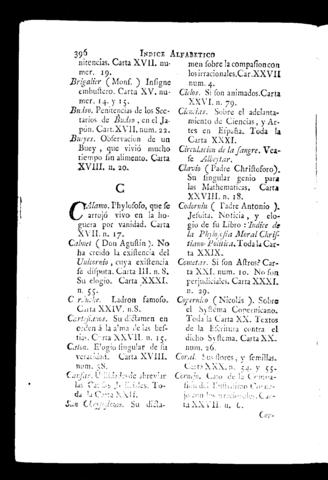 396 INDICE ALFABETICO
nitencias. Carta XVII. nu-
mer. 19.
Brigalier (Mons.) Insigne
embustero. Carta XV. nu-
mer. 14. y 15.
Budso. Penitencias de los Sec-
tarios de Budso, en el Ja-
pón. Cart. XVII. num. 22.
Bueyes. Observacion de un
Buey, que vivió mucho
tiempo sin alimento. Carta
XVIII. n. 20.
C
Calamo. Phylosofo, que se
arrojó vivo en la ho-
guera por vanidad. Carta
XVII. n. 17.
Calmet (Don Agustin). No
ha creido la existencia del
Unicornio, cuya existencia
se disputa. Carta III. n. 8.
Su elogio. Carta XXXI.
n. 55.
Ladron famoso.
Carta XXIV. n. 8.
Cartesianos. Su dictamen en
orden á la alma de las bes-
tias. Carta XXVII. n. 15.
Caton. Elogio singular de su
veracidad. Carta XVIII.
num. 38.
Causas. Utilidades de abreviar
las Causas Judiciales. To-
da la Carta XXII.
San Chrysostomo. Su dicta-
men sobre la compasion con
los irracionales. Car. XXVII
num. 4.
Cielos. Si son animados. Carta
XXVI. n. 79.
Ciencias. Sobre el adelanta-
miento de Ciencias, y Ar-
tes en España. Toda la
Carta XXXI.
Circulacion de la sangre. Vea-
se Albeytar.
Clavio (Padre Christoforo).
Su singular genio para
las Mathematicas, Carta
XXVIII. n. 18.
Codorniu (Padre Antonio).
Jesuita. Noticia, y elo-
gio de su Libro: Indice de
la Phylosofia Moral Chris-
tiano Politica. Toda la Car-
ta XXIX.
Cometas. Si son Astros? Car-
ta XXI. num. 10. No son
perjudiciales. Carta XXXI.
n. 29.
Copernico (Nicolás). Sobre
el Systéma Copernicano.
Toda la Carta XX. Textos
de la Escritura contra el
dicho Systéma. Carta XX.
num. 26.
Coral. Sus flores, y semillas.
Carta XXX. n. 54. y 55.
Caso de la
con los irracionales. Car-
ta XXVII. n. 6.
Cor-